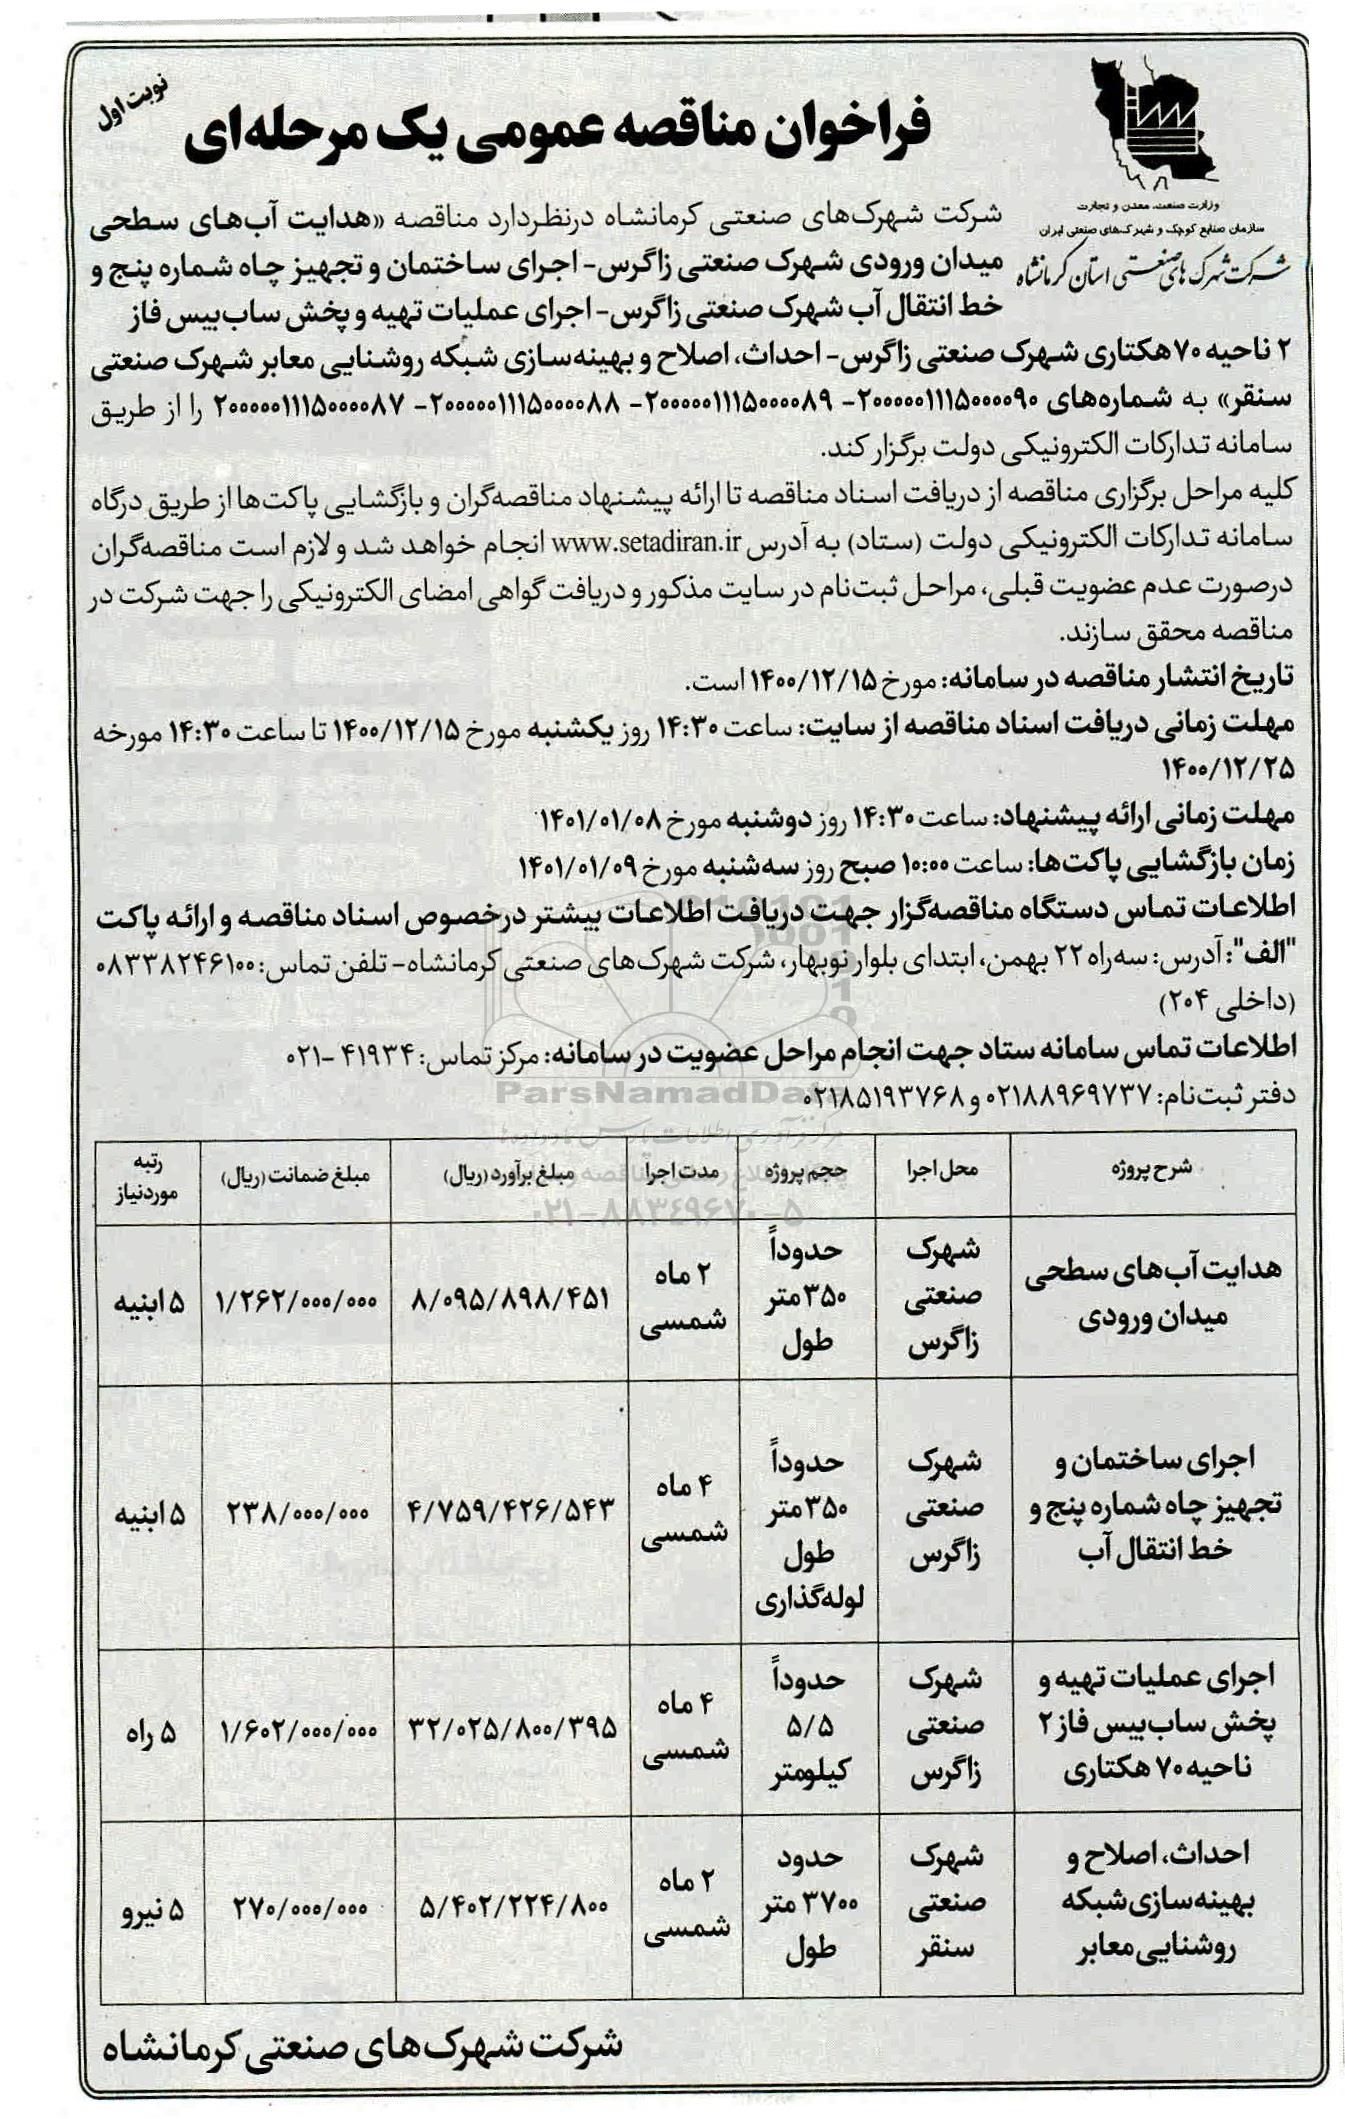 نوبت اول
فراخوان مناقصه عمومی یک مرحله‌ای
وزارت صنعت، معدن و تجارت
سازمان صنایع کوچک و شهرک‌های صنعتی ایران
شرکت شهرک‌های صنعتی استان کرمانشاه
شرکت شهرک‌های صنعتی کرمانشاه درنظردارد مناقصه «هدایت آب‌های سطحی
میدان ورودی شهرک صنعتی زاگرس- اجرای ساختمان و تجهیز چاه شماره پنج و
خط انتقال آب شهرک صنعتی زاگرس- اجرای عملیات تهیه و پخش ساب‌بیس فاز
۲ ناحیه ۷۰ هکتاری شهرک صنعتی زاگرس- احداث، اصلاح و بهینه‌سازی شبکه روشنایی معابر شهرک صنعتی
سنقر» به شماره‌های ۲۰۰۰۰۰۱۱۱۵۰۰۰۰۹۰- ۲۰۰۰۰۰۱۱۱۵۰۰۰۰۸۹- ۲۰۰۰۰۰۱۱۱۵۰۰۰۰۸۸- ۲۰۰۰۰۰۱۱۱۵۰۰۰۰۸۷ را از طریق
سامانه تدارکات الکترونیکی دولت برگزار کند.
کلیه مراحل برگزاری مناقصه از دریافت اسناد مناقصه تا ارائه پیشنهاد مناقصه‌گران و بازگشایی پاکت‌ها از طریق درگاه
سامانه تدارکات الکترونیکی دولت (ستاد) به آدرس www.setadiran.ir انجام خواهد شد و لازم است مناقصه‌گران
درصورت عدم عضویت قبلی، مراحل ثبت‌نام در سایت مذکور و دریافت گواهی امضای الکترونیکی را جهت شرکت در
مناقصه محقق سازند.
تاریخ انتشار مناقصه در سامانه: مورخ ۱۴۰۰/۱۲/۱۵ است.
مهلت زمانی دریافت اسناد مناقصه از سایت: ساعت ۱۴:۳۰ روز یکشنبه مورخ ۱۴۰۰/۱۲/۱۵ تا ساعت ۱۴:۳۰ مورخه
۱۴۰۰/۱۲/۲۵
مهلت زمانی ارائه پیشنهاد: ساعت ۱۴:۳۰ روز دوشنبه مورخ ۱۴۰۱/۰۱/۰۸
زمان بازگشایی پاکت‌ها: ساعت ۱۰:۰۰ صبح روز سه‌شنبه مورخ ۱۴۰۱/۰۱/۰۹
اطلاعات تماس دستگاه مناقصه‌گزار جهت دریافت اطلاعات بیشتر درخصوص اسناد مناقصه و ارائه پاکت
"الف": آدرس: سه‌راه ۲۲ بهمن، ابتدای بلوار نوبهار، شرکت شهرک‌های صنعتی کرمانشاه- تلفن تماس: ۰۸۳۳۸۲۴۶۱۰۰
(داخلی ۲۰۴)
اطلاعات تماس سامانه ستاد جهت انجام مراحل عضویت در سامانه: مرکز تماس: ۴۱۹۳۴ -۰۲۱
ParsNamadData
دفتر ثبت‌نام: ۰۲۱۸۸۹۶۹۷۳۷ و ۰۲۱۸۵۱۹۳۷۶۸
۰۲۱-۸۸۳۴۹۶۷۰-۵
شرح پروژه | محل اجرا | حجم پروژه | مدت اجرا | مبلغ برآورد (ریال) | مبلغ ضمانت (ریال) | رتبه موردنیاز
هدایت آب‌های سطحی میدان ورودی | شهرک صنعتی زاگرس | حدوداً ۳۵۰ متر طول | ۲ ماه شمسی | ۸/۰۹۵/۸۹۸/۴۵۱ | ۱/۲۶۲/۰۰۰/۰۰۰ | ۵ ابنیه
اجرای ساختمان و تجهیز چاه شماره پنج و خط انتقال آب | شهرک صنعتی زاگرس | حدوداً ۳۵۰ متر طول لوله‌گذاری | ۴ ماه شمسی | ۴/۷۵۹/۴۲۶/۵۴۳ | ۲۳۸/۰۰۰/۰۰۰ | ۵ ابنیه
اجرای عملیات تهیه و پخش ساب‌بیس فاز ۲ ناحیه ۷۰ هکتاری | شهرک صنعتی زاگرس | حدوداً ۵/۵ کیلومتر | ۴ ماه شمسی | ۳۲/۰۲۵/۸۰۰/۳۹۵ | ۱/۶۰۲/۰۰۰/۰۰۰ | ۵ راه
احداث، اصلاح و بهینه‌سازی شبکه روشنایی معابر | شهرک صنعتی سنقر | حدود ۳۷۰۰ متر طول | ۲ ماه شمسی | ۵/۴۰۲/۲۲۴/۸۰۰ | ۲۷۰/۰۰۰/۰۰۰ | ۵ نیرو
شرکت شهرک‌های صنعتی کرمانشاه